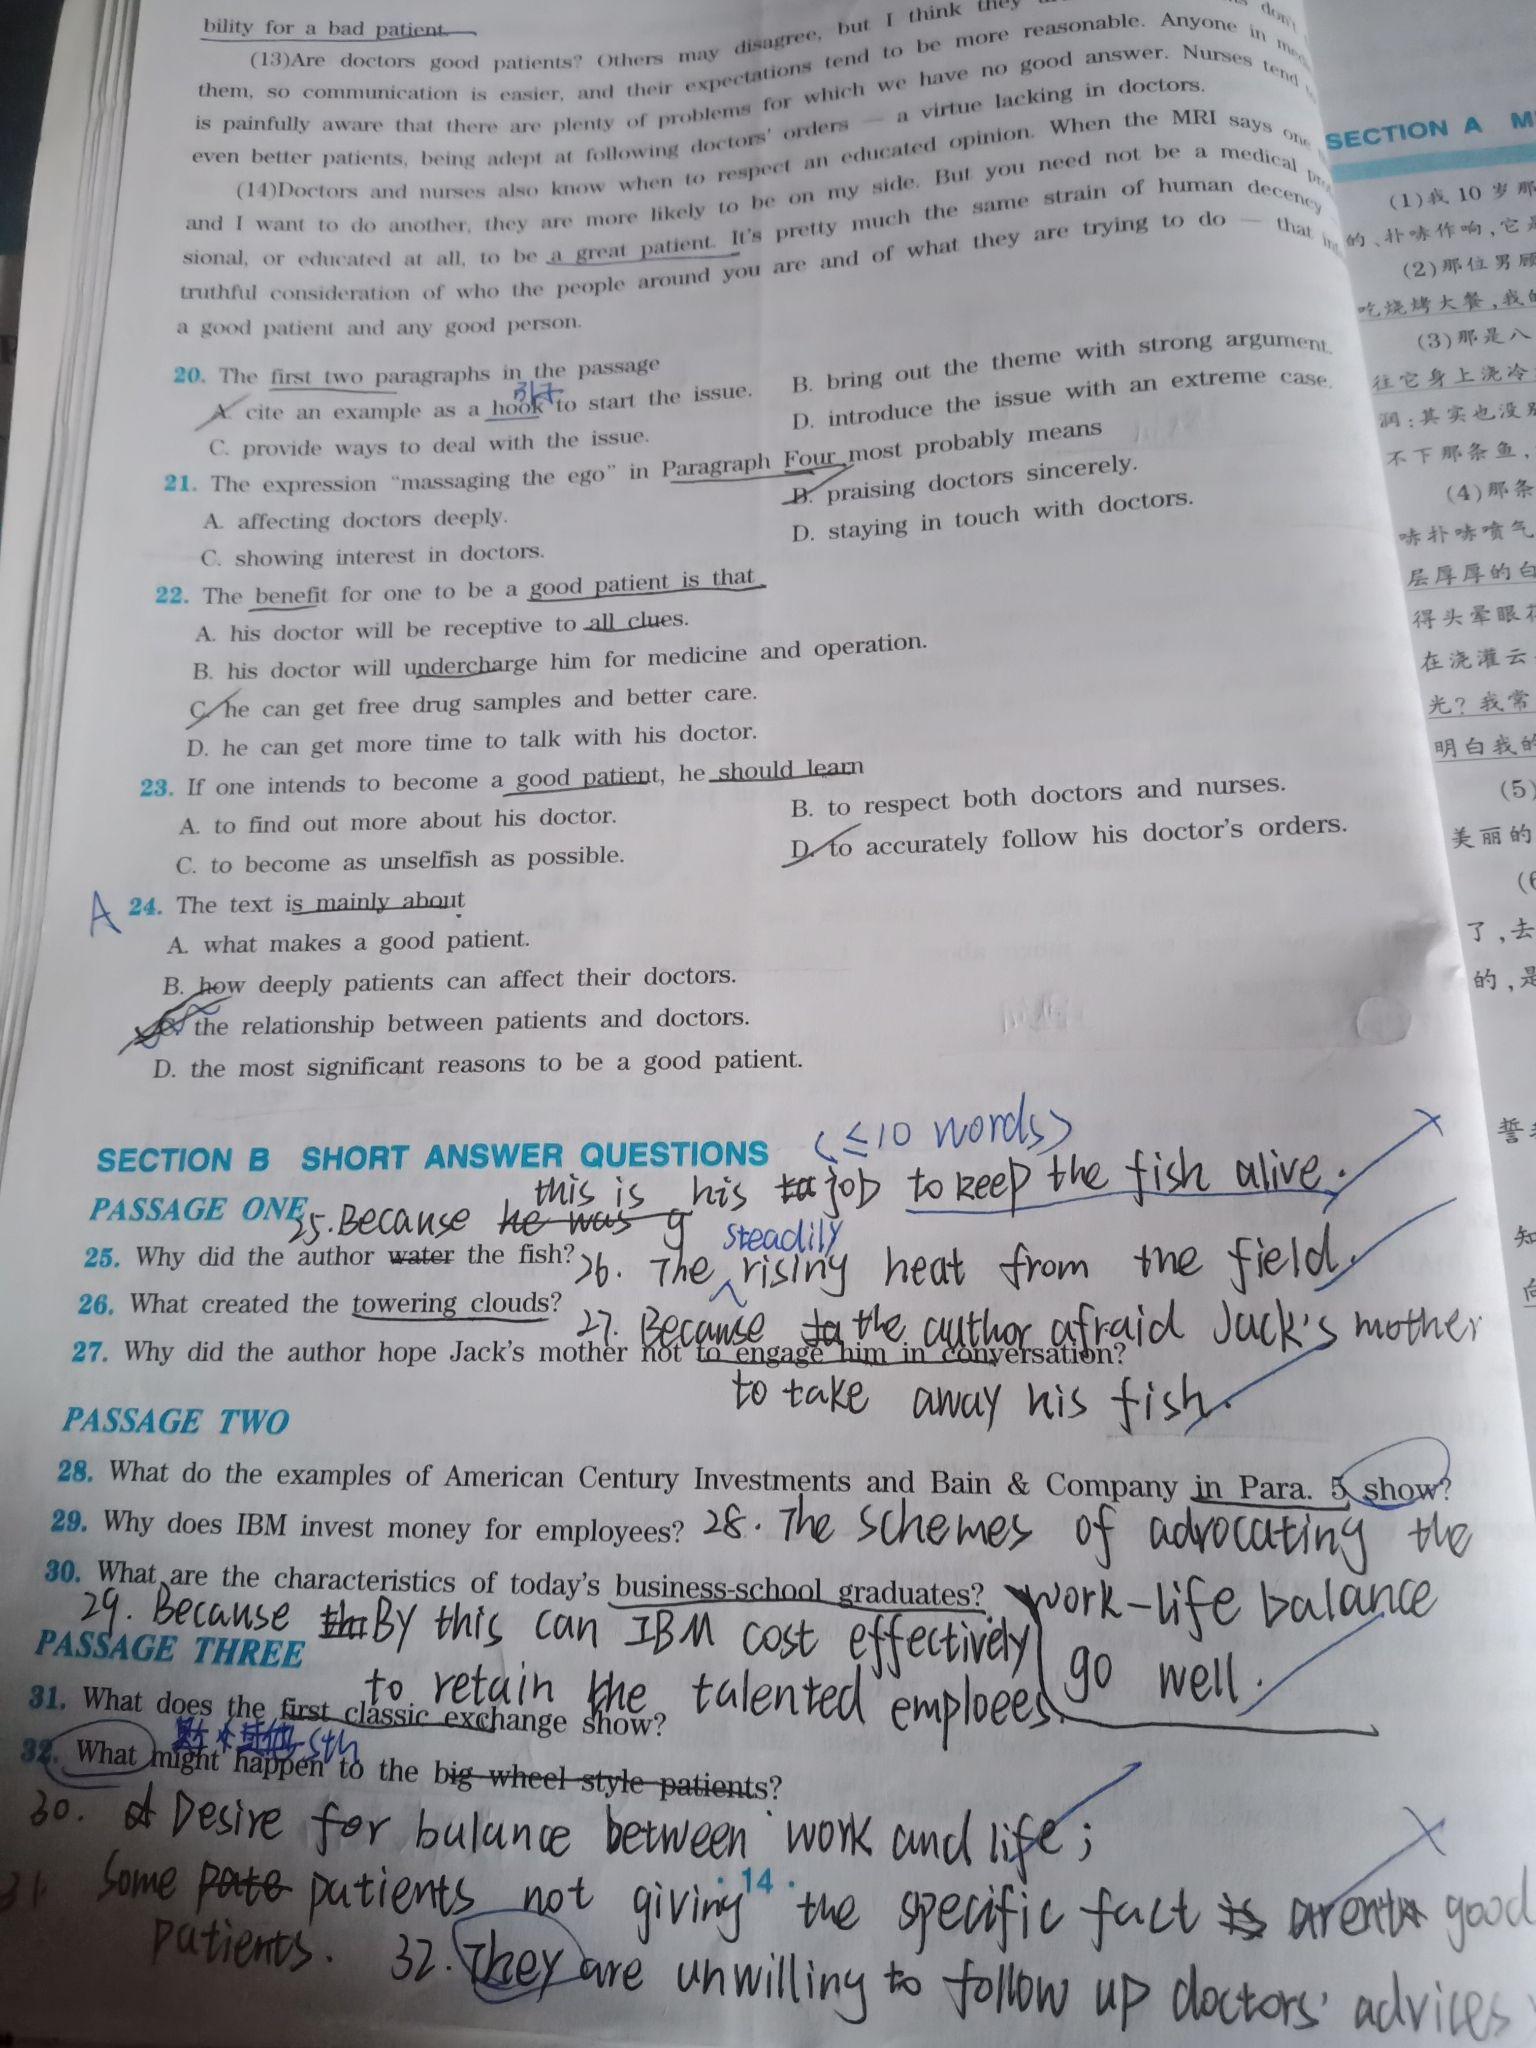 bility for a bad patient.
(13)Are doctors good patients? Others may disagree, but I think they
them, so communication is easier, and their expectations tend to be more reasonable. Anyone in
is painfully aware that there are plenty of problems for which we have no good answer. Nurses tend
even better patients, being adept at following doctors' orders — a virtue lacking in doctors.
(14)Doctors and nurses also know when to respect an educated opinion. When the MRI says one
and I want to do another, they are more likely to be on my side. But you need not be a medical
sional, or educated at all, to be a great patient. It's pretty much the same strain of human decency
truthful consideration of who the people around you are and of what they are trying to do — that
a good patient and any good person.
20. The first two paragraphs in the passage
引子
A. cite an example as a hook to start the issue.
B. bring out the theme with strong argument.
C. provide ways to deal with the issue.
D. introduce the issue with an extreme case.
21. The expression “massaging the ego” in Paragraph Four most probably means
A. affecting doctors deeply.
B. praising doctors sincerely.
C. showing interest in doctors.
D. staying in touch with doctors.
22. The benefit for one to be a good patient is that
A. his doctor will be receptive to all clues.
B. his doctor will undercharge him for medicine and operation.
C. he can get free drug samples and better care.
D. he can get more time to talk with his doctor.
23. If one intends to become a good patient, he should learn
A. to find out more about his doctor.
B. to respect both doctors and nurses.
C. to become as unselfish as possible.
D. to accurately follow his doctor's orders.
A 24. The text is mainly about
A. what makes a good patient.
B. how deeply patients can affect their doctors.
C. the relationship between patients and doctors.
D. the most significant reasons to be a good patient.
(≤10 words)
SECTION B SHORT ANSWER QUESTIONS
PASSAGE ONE
25. Because he was this is his job to keep the fish alive.
25. Why did the author water the fish?
26. The steadily rising heat from the field.
26. What created the towering clouds?
27. Because the author afraid Jack's mother
27. Why did the author hope Jack's mother not to engage him in conversation?
to take away his fish.
PASSAGE TWO
28. What do the examples of American Century Investments and Bain & Company in Para. 5 show?
29. Why does IBM invest money for employees?
28. The schemes of advocating the
30. What are the characteristics of today's business-school graduates?
work-life balance
29. Because By this can IBM cost effectively
go well.
PASSAGE THREE
to retain the talented emploees.
31. What does the first classic exchange show?
sth
32. What might happen to the big wheel style patients?
30. Desire for balance between work and life;
· 14 ·
31. Some patients not giving the specific fact aren't good
patients. 32. They are unwilling to follow up doctors' advices
SECTION A
(1)我 10 岁那
的、扑哧作响,它
(2)那位男顾
吃烧烤大餐,我
(3)那是八
往它身上浇冷
润:其实也没
不下那条鱼,
(4)那条
哧扑哧喷气
层厚厚的白
得头晕眼花
在浇灌云
光?我常
明白我的
(5)
美丽的
(6
了,去
的,是
誓
知
向